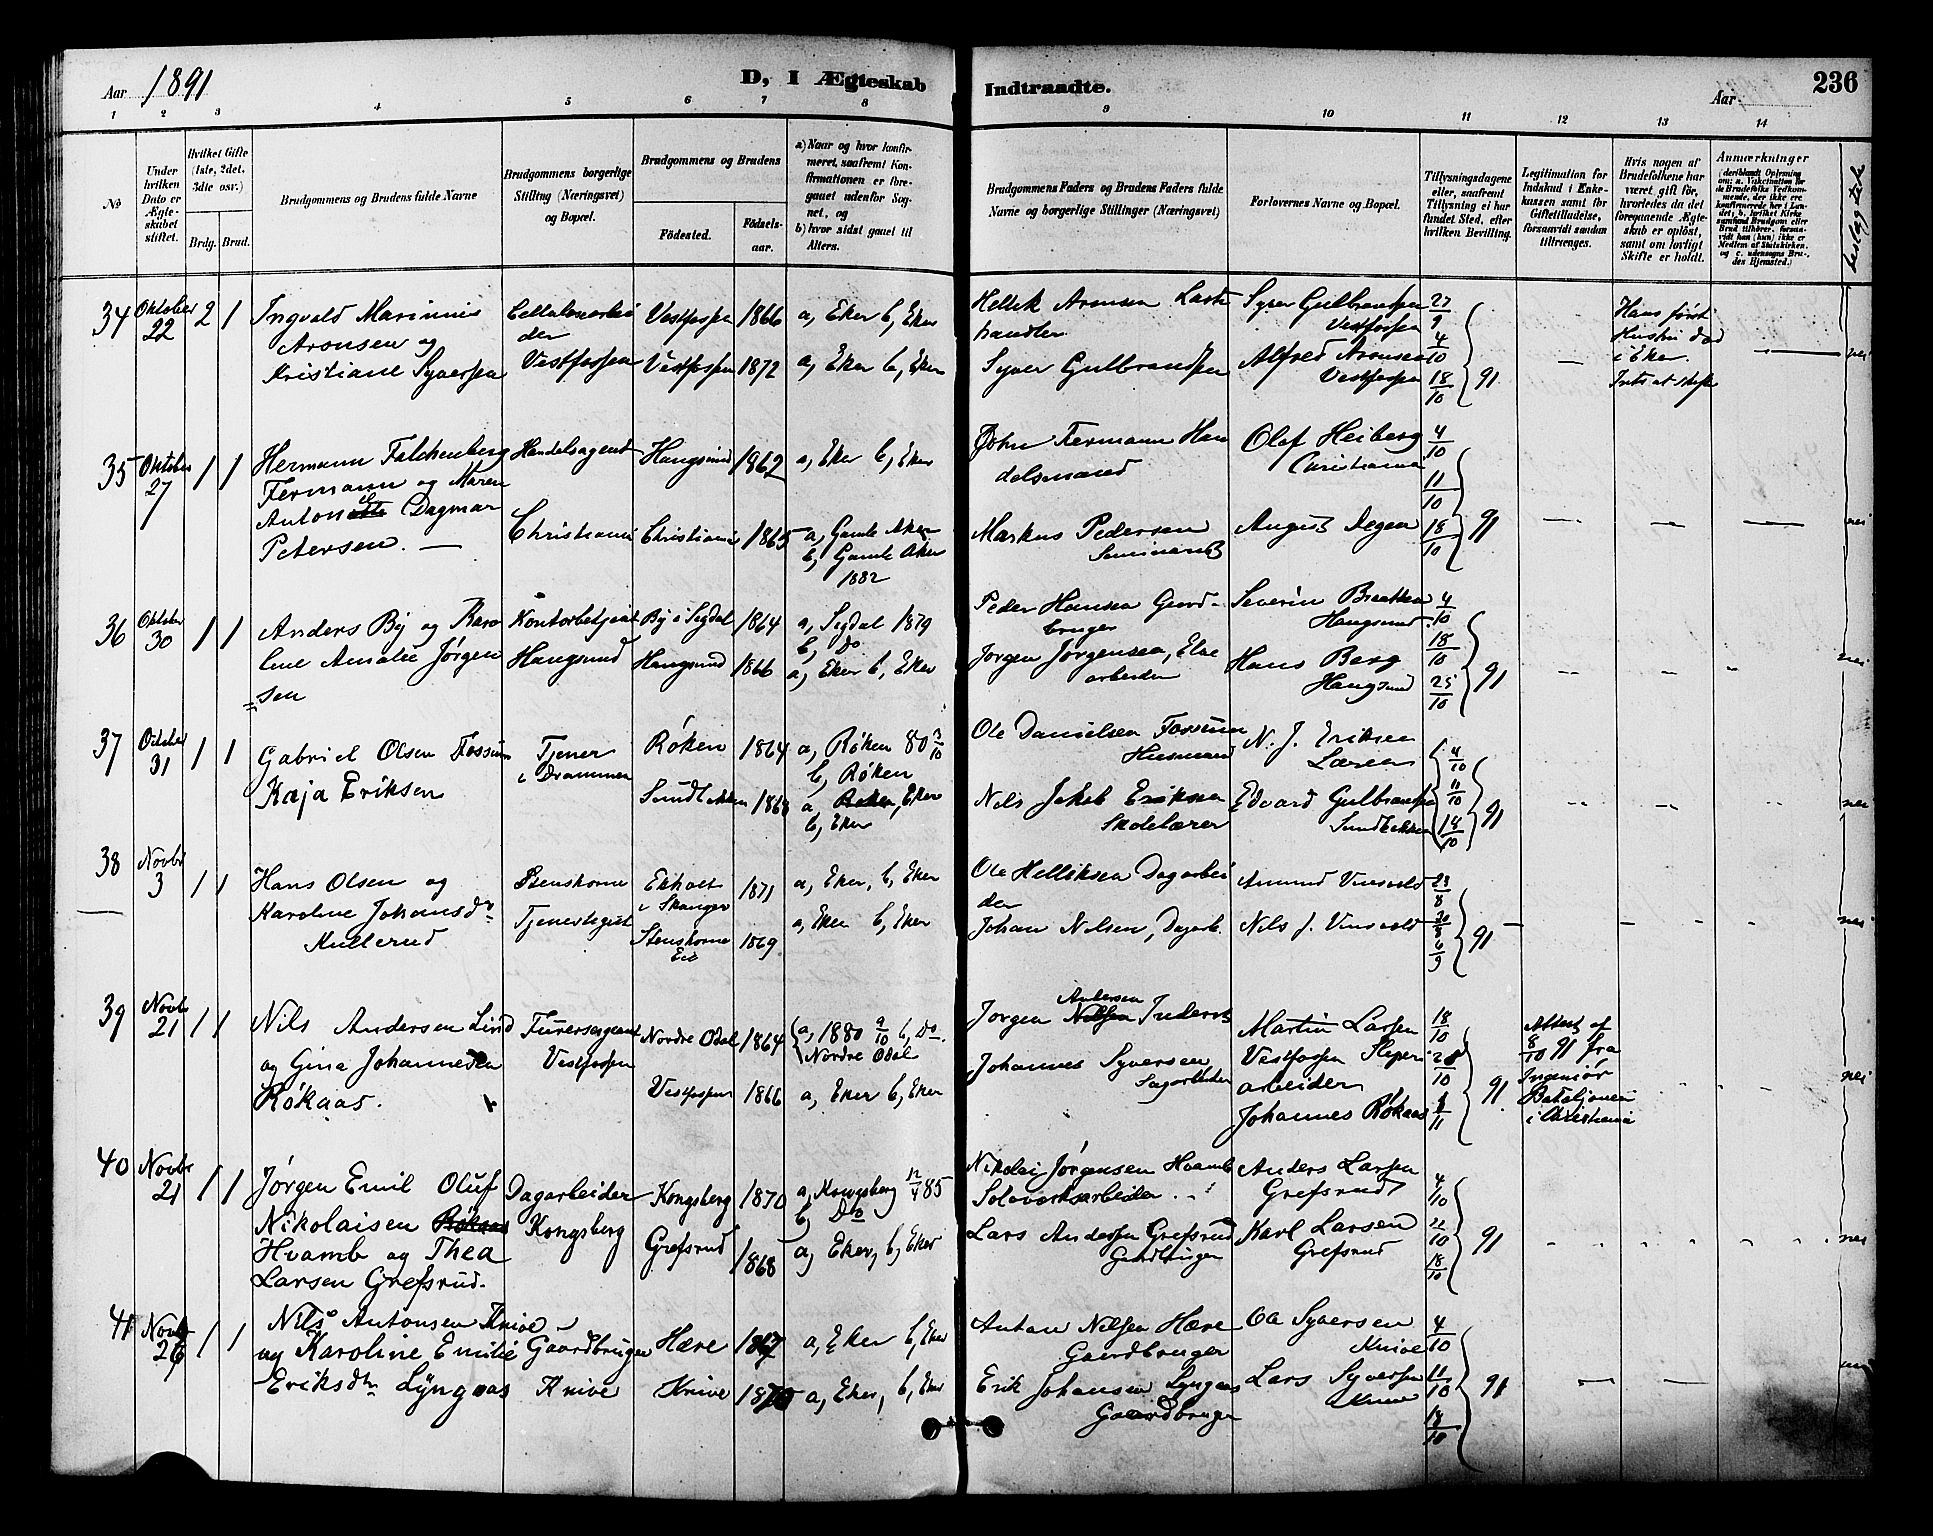 Aar 1891
D, I Ægteskab
Indtraadte.
Aar
236
1 2 3 4 5 6 7 8 9 10 11 12 13 14
No
Under hvilken Dato er Ægteskabet stiftet.
Hvilket Gifte (1ste, 2det, 3die osv.)
Brdg. Brud.
Brudgommens og Brudens fulde Navne
Brudgommens borgerlige Stilling (Næringsvei) og Bopæl.
Brudgommens og Brudens
Fødested.
Fødselsaar.
a) Naar og hvor konfirmeret, saafremt Konfirmationen er foregaaet udenfor Sognet, og
b) hvor sidst gaaet til Alters.
Brudgommens Faders og Brudens Faders fulde Navne og borgerlige Stillinger (Næringsvei)
Forlovernes Navne og Bopæl.
Tillysningsdagene eller, saafremt Tillysning ei har fundet Sted, efter hvilken Bevilling.
Legitimation for Indskud i Enkekassen samt for Giftetilladelse, forsaavidt saadan tiltrænges.
Hvis nogen af Brudefolkene har været gift før, hvorledes da det foregaaende Ægteskab er opløst, samt om lovligt Skifte er holdt.
Anmærkninger
34 Oktober 22 2 1
Ingvald Marinius Aronsen og Kristiane Syversen
Vestfossen
Vestfossen 1866 a, Eker b, Eker
Vestfossen 1872 a, Eker b, Eker
Hellik Aronsen
handler
Syver Gulbrandsen
Syver Gulbransen Vestfossen
Alfred Aronsen Vestfossen
27/9 4/10 18/10 91
Hans først Hustru død i Eker.
nei
35 Oktober 27 1 1
Hermann Falchenberg Fermann og Maren Antonette Dagmar Petersen.
Handelsagent
Christiania
Haugsund 1862 a, Eker b, Eker
Christiania 1865 a, Gamle Aker b, Gamle Aker 1882
John Fermann Handelsmand
Markus Pedersen
Olaf Heiberg Christiania
August Degen
4/10 11/10 18/10 91
nei
36 Oktober 30 1 1
Anders By og Karoline Amalie Jørgensen
Kontorbetjent
Haugsund
By i Sigdal 1864 a, Sigdal 1879 b, Do
Haugsund 1866 a, Eker b, Eker
Peder Hansen Gaardbruger
Jørgen Jørgensen, Elvearbeider
Severin Braathen Haugsund
Hans Berg Haugsund
4/10 18/10 25/10 91
nei
37 Oktober 31 1 1
Gabriel Olsen Fossum
Kaja Eriksen
Tjener i Drammen
Røken 1864 a, Røken 80 3/10 b, Røken
1868 a, Røken, Eker b, Eker
Ole Danielsen Fossum Husmand
Nils Jakob Eriksen Skolelærer
N. J. Eriksen Læreren
Edvard Gulbransen
4/10 11/10 18/10 91
nei
38 Novbr 3 1 1
Hans Olsen og Karoline Johansdr Kullerud
Tjenestegut
1871 a, Eker, b, Eker
1869 a, Eker b, Eker
Ole Helliksen Dagarbeider
Johan Nilsen, Dagarb.
Amund
Nils J.
23/8 30/8 6/9 91
nei
39 Novbr 21 1 1
Nils Andersen Lind og Gina Johannesen Røkaas.
Furersergeant
Vestfossen
Nordre Odal 1864 a, 1880 9/10 b, Do. Nordre Odal
Vestfossen 1866 a, Eker b, Eker
Jørgen Nilsen Andersen Inderst
Johannes Syversen, Sagarbeider
Martin Larsen Vestfossen Sliperiarbeider
Johannes Røkaas
18/10 91
Attest af 8/10 91 fra Ingeniør Bataljonen i Christiania
nei
40 Novbr 21 1 1
Jørgen Emil Oluf Nikolaisen Røkaas Hvamb og Thea Larsen Grefsrud.
Dagarbeider Kongsberg
Kongsberg 1870 a, Kongsberg 12/4 85 b, Do
Grefsrud 1868 a, Eker, b, Eker
Nikolai Jørgensen Hvamb Sølvverksarbeider
Lars Andersen Grefsrud Gaardbruger
Anders Larsen Grefsrud
Karl Larsen Grefsrud
4/10 11/10 18/10 91
nei
41 Novbr 26 1 1
Nils Antonsen Knive og Karoline Emilie Eriksdtr Lyngaas
Gaardbruger
Knive
Hære 1867 a, Eker b, Eker
Knive 1870 a, Eker, b, Eker
Anton Nilsen Hære Gaardbruger
Erik Johansen Lyngaas Gaardbruger
Ole Syversen Knive
Lars Syversen Knive
4/10 11/10 18/10 91